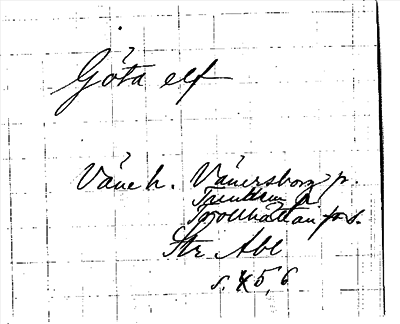 Göta elf
Väne h. Vänersborg p.
Trollhättan förs.
Str Abl
s. 4 5, 6